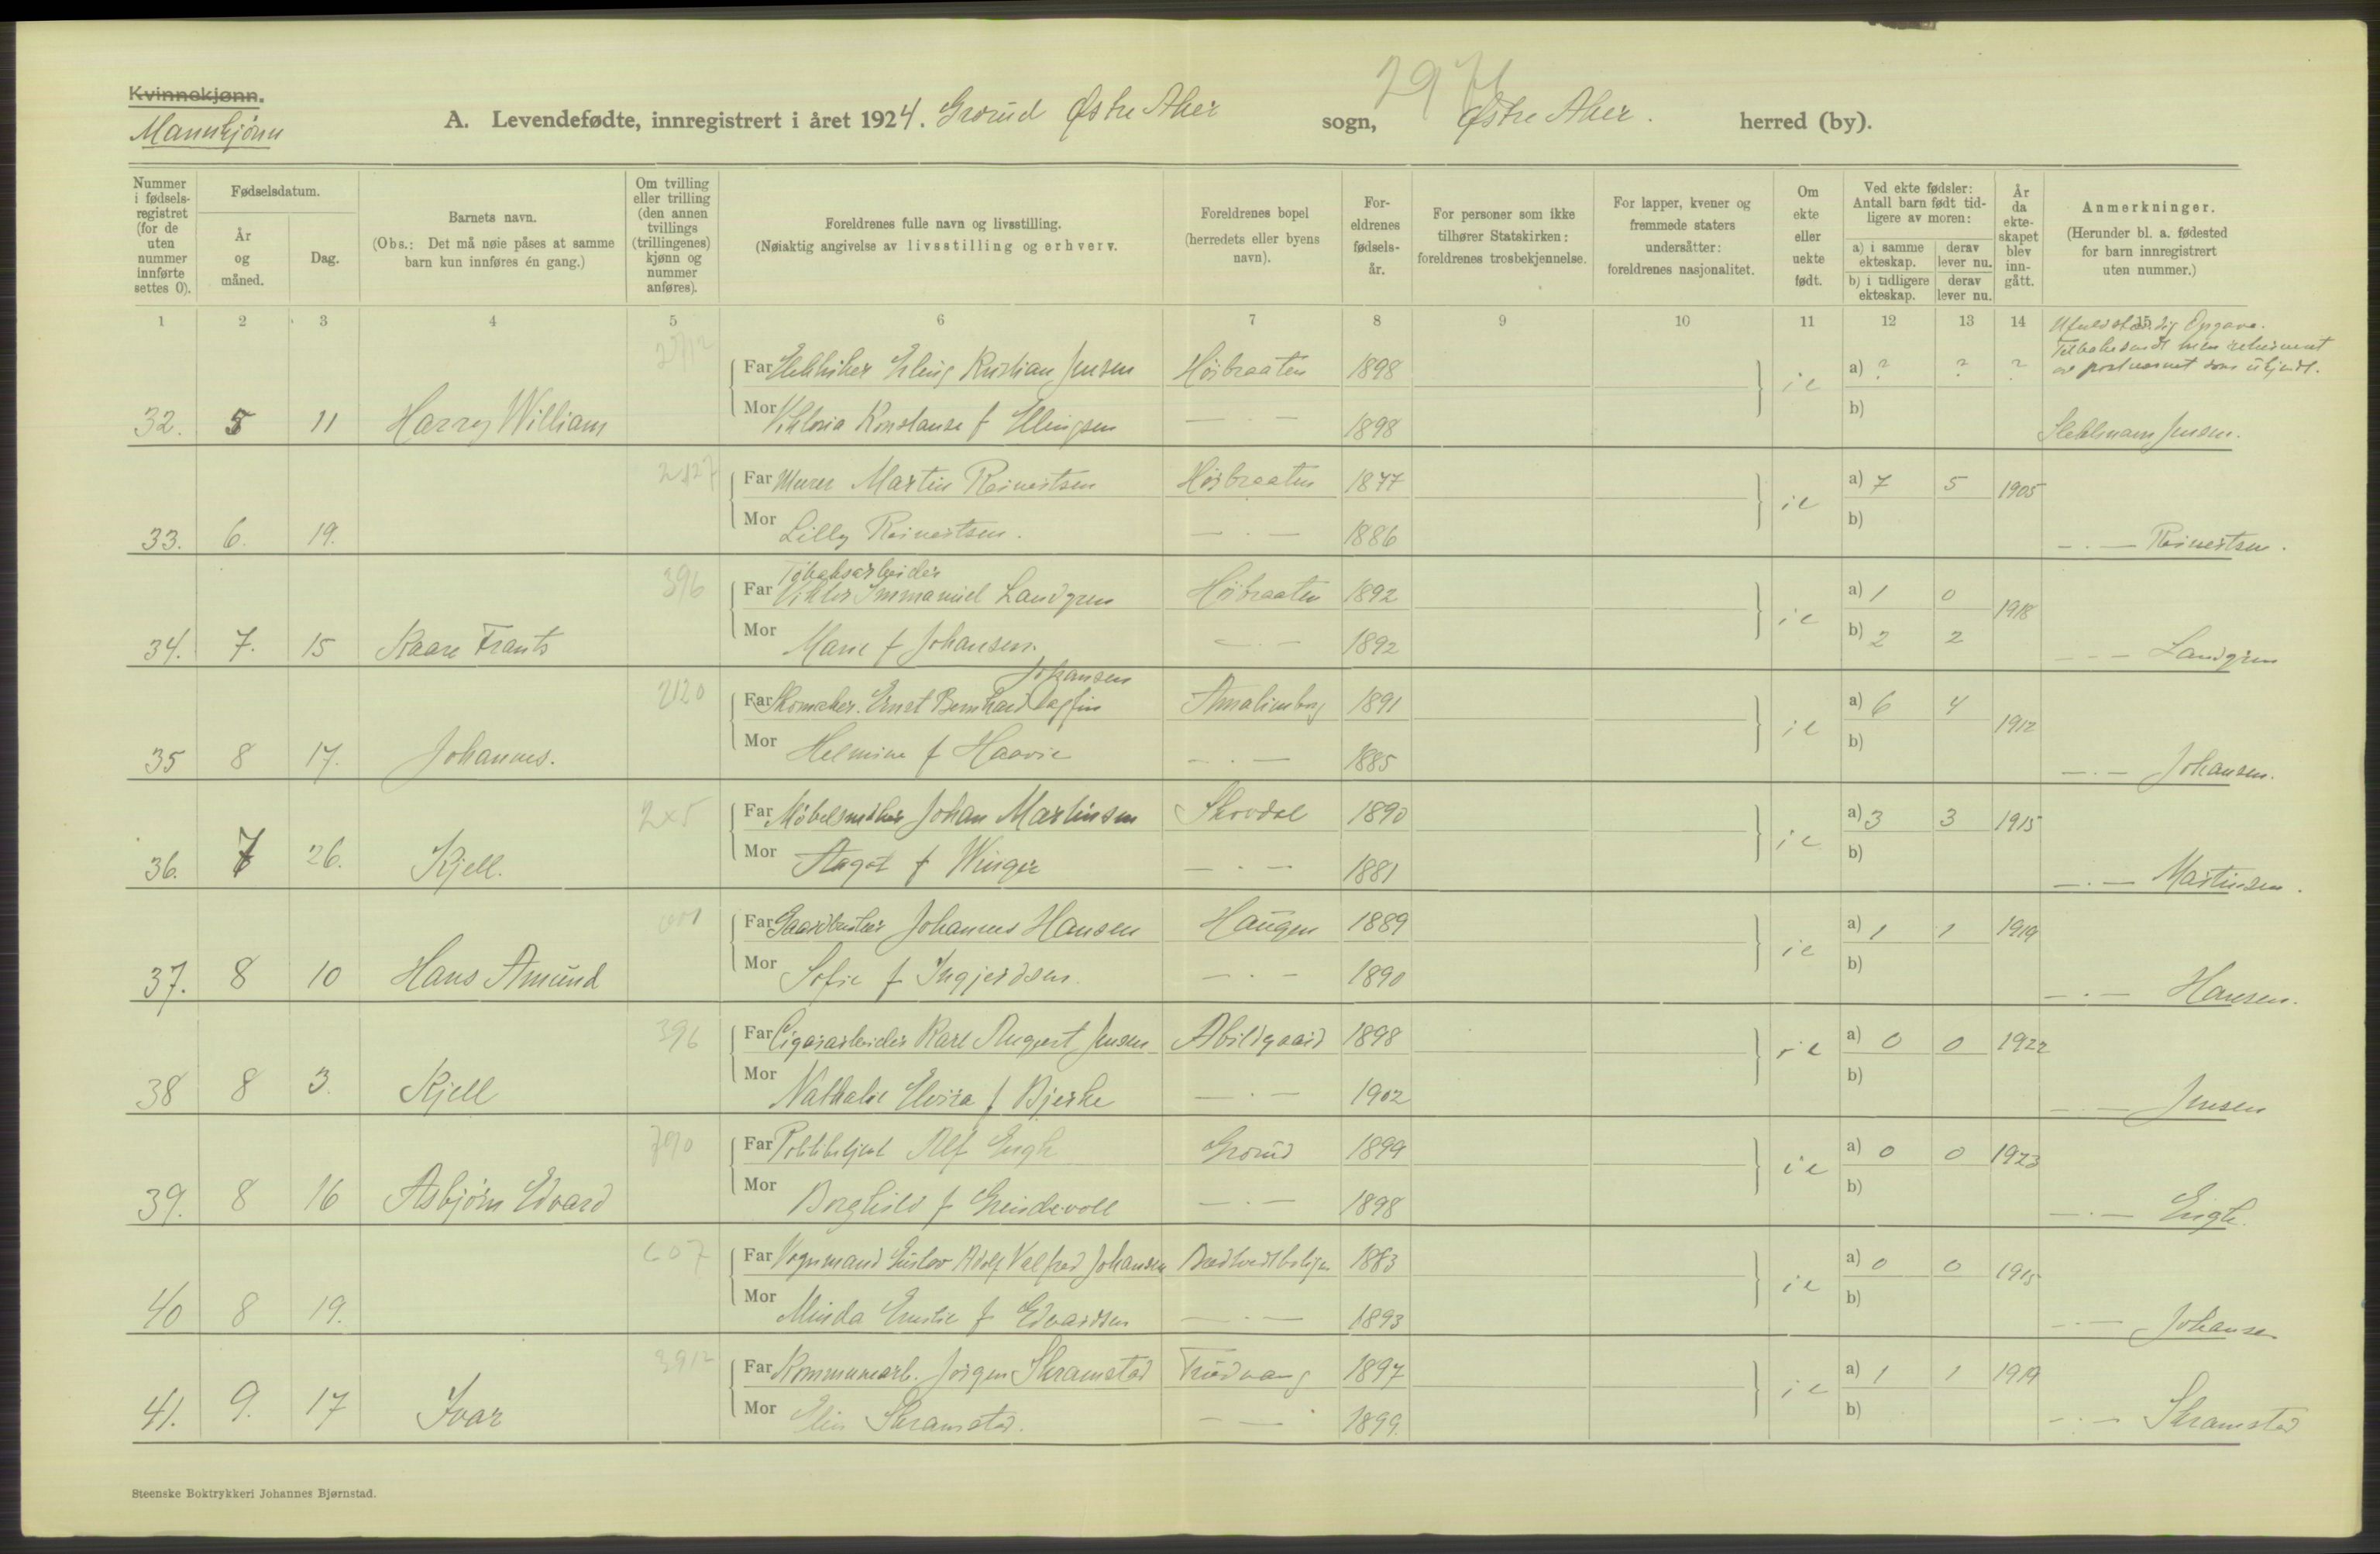 Kvinnekjønn.
Mannkjønn
A. Levendefødte, innregistrert i året 1924. Grorud Østre Aker sogn, Østre Aker. herred (by).
Nummer i fødselsregistret (for de uten nummer innførte settes 0).
Fødselsdatum.
År og måned.
Dag.
Barnets navn.
(Obs.: Det må nøie påses at samme barn kun innføres én gang.)
Om tvilling eller trilling (den annen tvillings (trillingenes) kjønn og nummer anføres).
Foreldrenes fulle navn og livsstilling.
(Nøiaktig angivelse av livsstilling og erhverv.
Foreldrenes bopel (herredets eller byens navn).
Foreldrenes fødselsår.
For personer som ikke tilhører Statskirken: foreldrenes trosbekjennelse.
For lapper, kvener og fremmede staters undersåtter: foreldrenes nasjonalitet.
Om ekte eller uekte født.
Ved ekte fødsler: Antall barn født tidligere av moren:
a) i samme ekteskap.
derav lever nu.
b) i tidligere ekteskap.
derav lever nu.
År da ekteskapet blev inngått.
Anmerkninger.
(Herunder bl. a. fødested for barn innregistrert uten nummer.)
1 2 3 4 5 6 7 8 9 10 11 12 13 14 15
Ufuldstændig Opgave.
av postvesnet som ukjendt.
Far Erling Kristian Jensen Høibraaten 1898 a) ? ? ?
32. 5 11 Harry William Mor Viktoria Konstanse f Ellingsen — 1898 b) Jensen.
2127 Far Murer Martin Reinertsen Høibraaten 1877 a) 7 5 1905
33. 6. 19. Mor Lilly Reinertsen. — 1886 b) — Reinertsen.
Tobaksarbeider
396 Far Viktor Immanuel Landgren Høibraaten 1892 a) 1 0 1918
34. 7. 15 Kaare Frants Mor Marie f Johansen. — 1892 b) 2 2 — Landgren
Johansen
2120 Far Skomaker. Ernst Bernhard Dagfin Amalienborg 1891 a) 6 4 1912
35 8 17. Johannes. Mor Helmine f Haavie — 1885 b) — Johansen.
2x5 Far Møbelsnekker Johan Martinsen Skovdal 1890 a) 3 3 1915
36. 7 26. Kjell. Mor Aagot f Winger — 1881 b) — Martinsen.
Far Gaardbruker Johannes Hansen Haugen 1889 a) 1 1 1919
37. 8 10 Hans Amund Mor Sofie f Ingjerdsen. — 1890 b) — Hansen.
396 Far Cigararbeider Karl August Jensen Abildgaard 1898 a) 0 0 1922
38 8 3. Kjell Mor Nathalie Elvira f Bjerke — 1902 b) — Jensen
Far Politibetjent Alf Engh Grorud 1899 a) 0 0 1923
39. 8 16 Asbjørn Edvard Mor Borghild f — 1898 b) — Engh.
607 Far Vognmand Gustav Adolf Valfred Johansen 1883 a) 0 0 1915
40 8 19. Mor Minda Emilie f Edvardsen — 1893 b) — Johansen
3912 Far Kommunearb. Jørgen Skramstad Trudvang 1897 a) 1 1 1919
41. 9. 17 Ivar Mor Elin Skramstad. — 1899. b) — Skramstad
Steenske Boktrykkeri Johannes Bjørnstad.